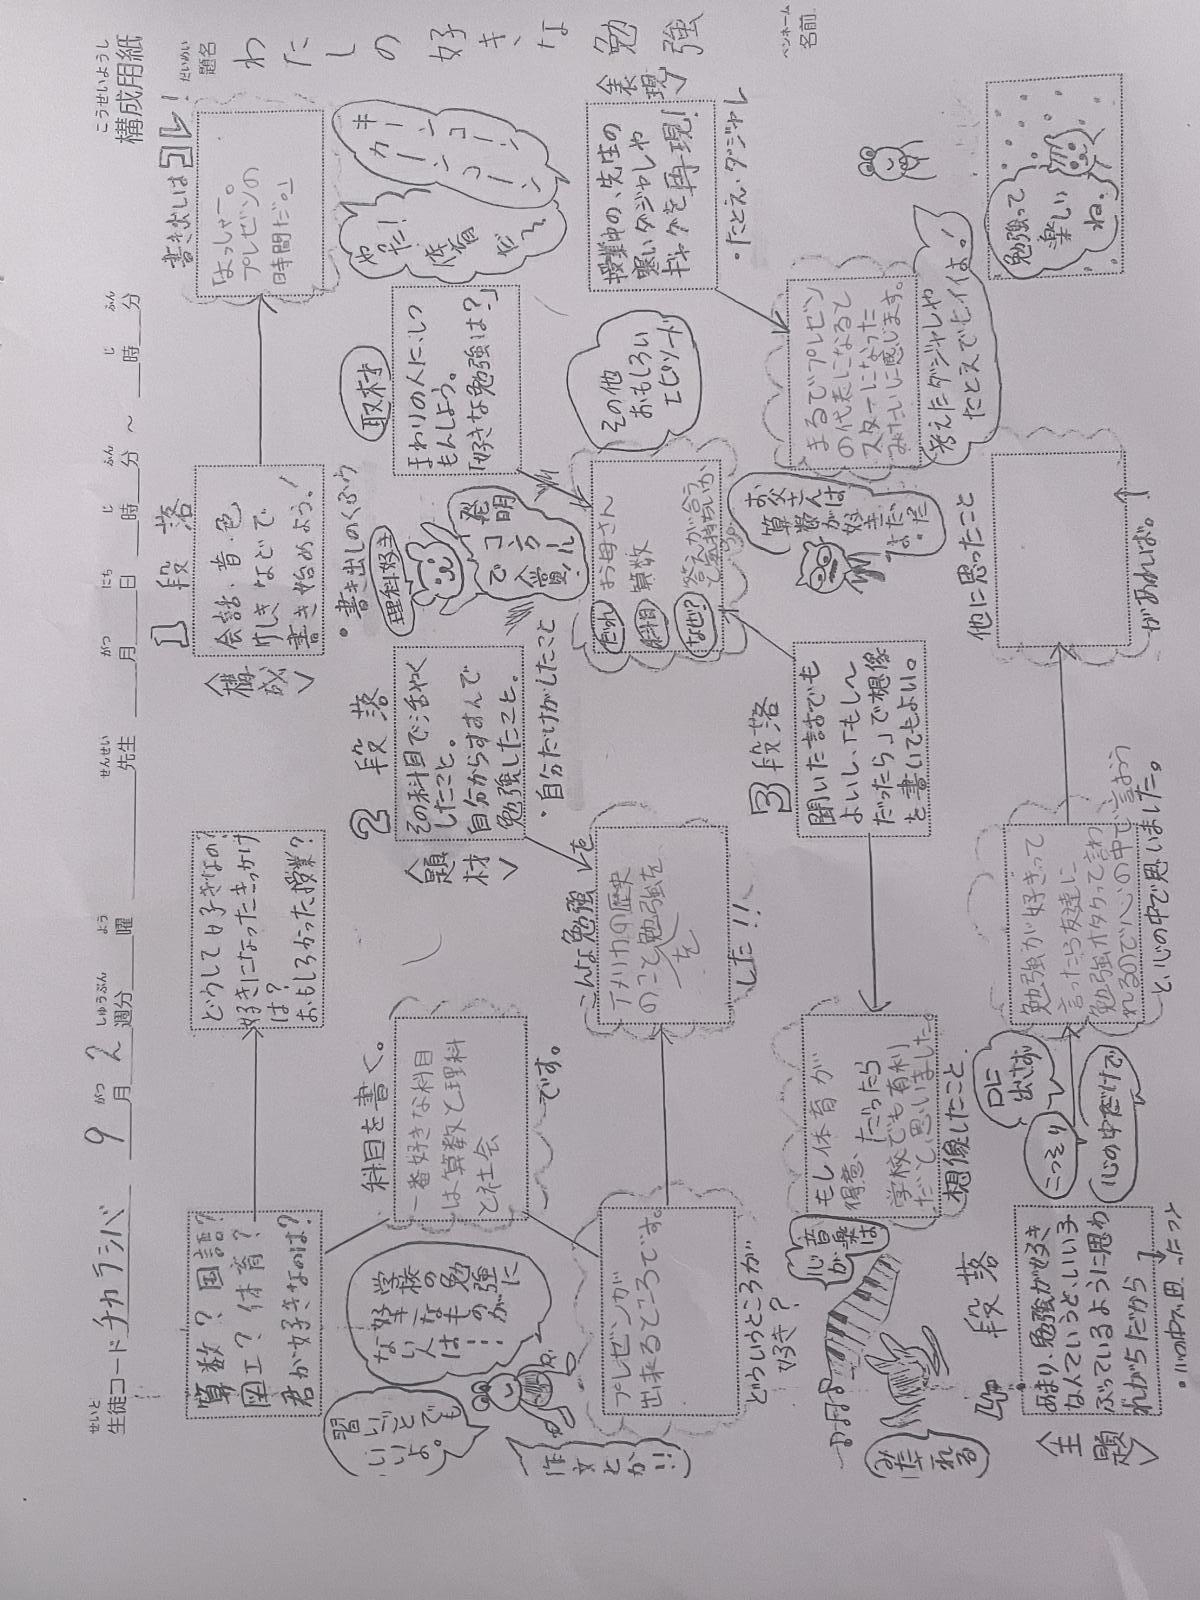 こうせいようし
構成用紙
せいと
生徒コード チカラシバ 9 がつ 月 2 しゅうぶん 週分 よう 曜 せんせい 先生 がつ 月 にち 日 じ 時 ふん 分 ～ じ 時 ふん 分
だいめい
題名
わたしの好きな勉強
ペンネーム
名前
1段落
〈構成〉
書き出しはコレ!
「よっしゃー。
プレゼンの
時間だ。」
会話・音・色
けしきなどで
書き始めよう!
・書き出しのくふう
やった!
体育
だ～
キーン
コーン
カーン
コーン
どうして好きなの?
好きになったきっかけ
は?
おもしろかった授業?
算数? 国語?
図工? 体育?
君が好きなのは?
学校の勉強に
好きなものが
ない人は…
習いごとでも
いいよ。
作文とか!!
科目を書く。
一番好きな科目
は算数と理科
と社会
です。
2段落
〈題材〉
その科目で活やく
したこと。
自分からすすんで
勉強したこと。
・自分だけがしたこと
理科好き
発明
コンクール
で
入賞!
取材
まわりの人にしつ
もんしよう。
「好きな勉強は?」
その他
おもしろい
エピソード
だれ お母さん
科目 算数
なぜ? 答えが合う
と気持ちいいから
こんな勉強を
アメリカの歴史
のこと勉強を
を
した!!
プレゼンが
出来るところです。
どういうところが
好き?
〈表現〉
授業中の、先生の
寒いダジャレや
ギャグを再現!
・たとえ・ダジャレ
まるでプレゼン
の代表になると
スターになった
みたいに感じます。
考えたダジャレや
たとえでヒイイよ!
お父さんは
算数が
好き
だったよ。
3段落
聞いた話までも
よいし、「もし～
だったら」で想像
を書いてもよい。
もし体育が
得意、だったら
学校でも有利
だと思いました。
想像したこと
音楽は
心が
みたされる
4段落
〈主題〉
あまり、勉強が好き
なんていうと、いい子
ぶっているように思わ
れがちだから
・心の中で思ったこと
口に出さず
こっそり
心の中だけで
勉強が好きって
言ったら友達に
勉強オタクって言わ
れるので心の中で言おう
と、心の中で思いました。
他に思ったこと
があれば。
勉強って
楽しい
ね。